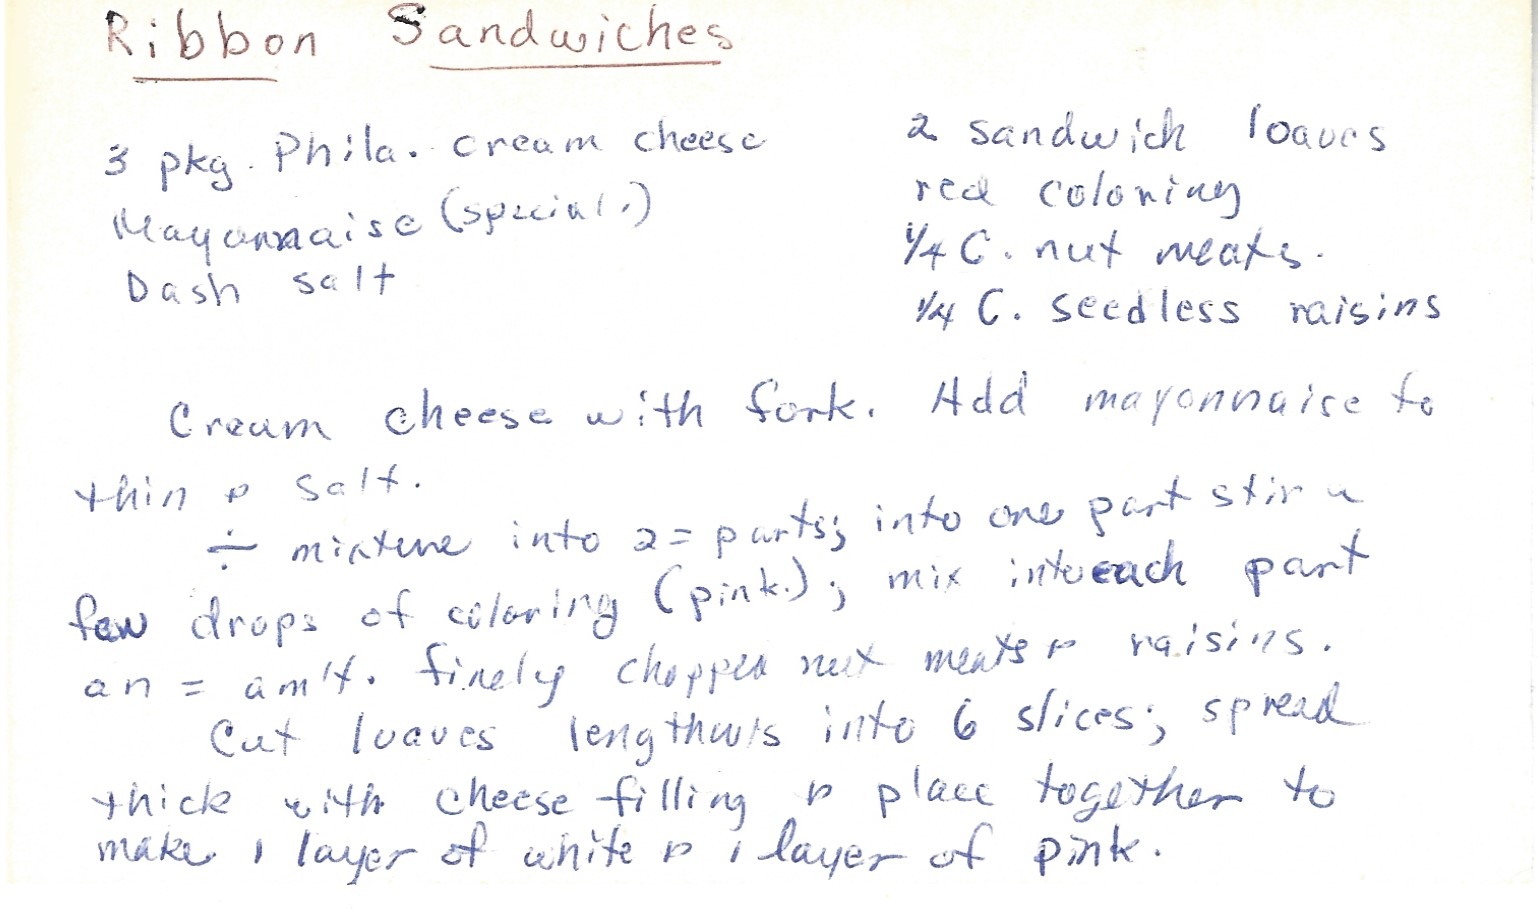 Ribbon Sandwiches
3 pkg. Phila. cream cheese
Mayonnaise (special.)
Dash salt
2 sandwich loaves
red coloring
1/4 C. nut meats.
1/4 C. seedless raisins
Cream cheese with fork. Add mayonnaise to
thin & salt.
÷ mixture into 2 = parts; into one part stir a
few drops of coloring (pink.); mix into each part
an = am't. finely chopped nut meats & raisins.
Cut loaves lengthwis into 6 slices; spread
thick with cheese filling & place together to
make 1 layer of white & 1 layer of pink.